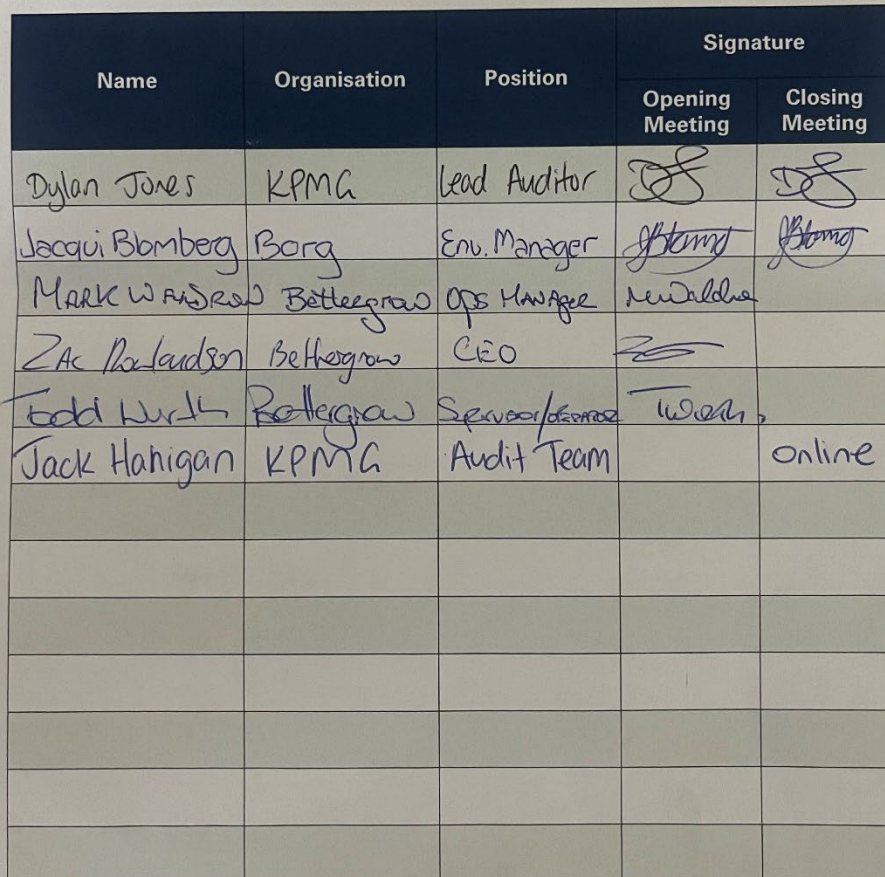 Name Organisation Position Signature
Opening Meeting Closing Meeting
Dylan Jones KPMG Lead Auditor
Jacqui Blomberg Borg Env. Manager
MARK Bettergrow Ops MANAGER
ZAC Bettergrow CEO
Todd Bettergrow
Jack Hanigan KPMG Audit Team Online